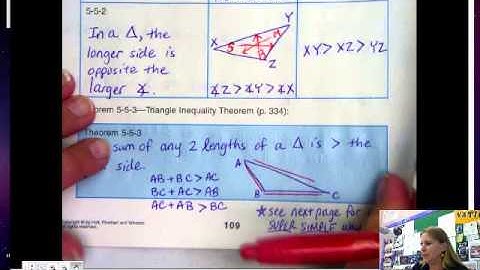 5-5-2
In a △, the
longer side is
opposite the
larger ∡.
X Y Z
S
∡Z > ∡Y > ∡X
XY > XZ > YZ
orem 5-5-3—Triangle Inequality Theorem (p. 334):
Theorem 5-5-3
sum of any 2 lengths of a △ is > the
side.
AB + BC > AC
BC + AC > AB
AC + AB > BC
A
B C
* see next page for
SUPER SIMPLE way
109